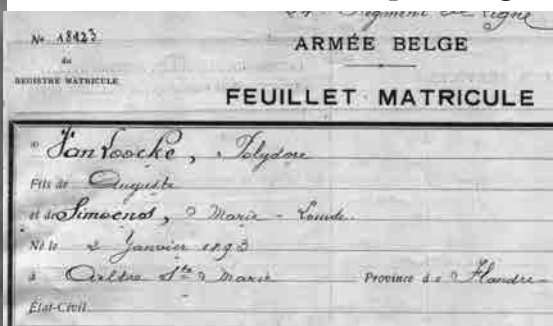 Régiment de Ligne
Nº 18123
ARMÉE BELGE
du
REGISTRE MATRICULE
FEUILLET MATRICULE
Van Loocke, Polydore
Fils de Auguste
et de Simoens, Marie - Louise.
Né le 2 Janvier 1893
à Oultre Ste Marie Province de Flandre
État-Civil